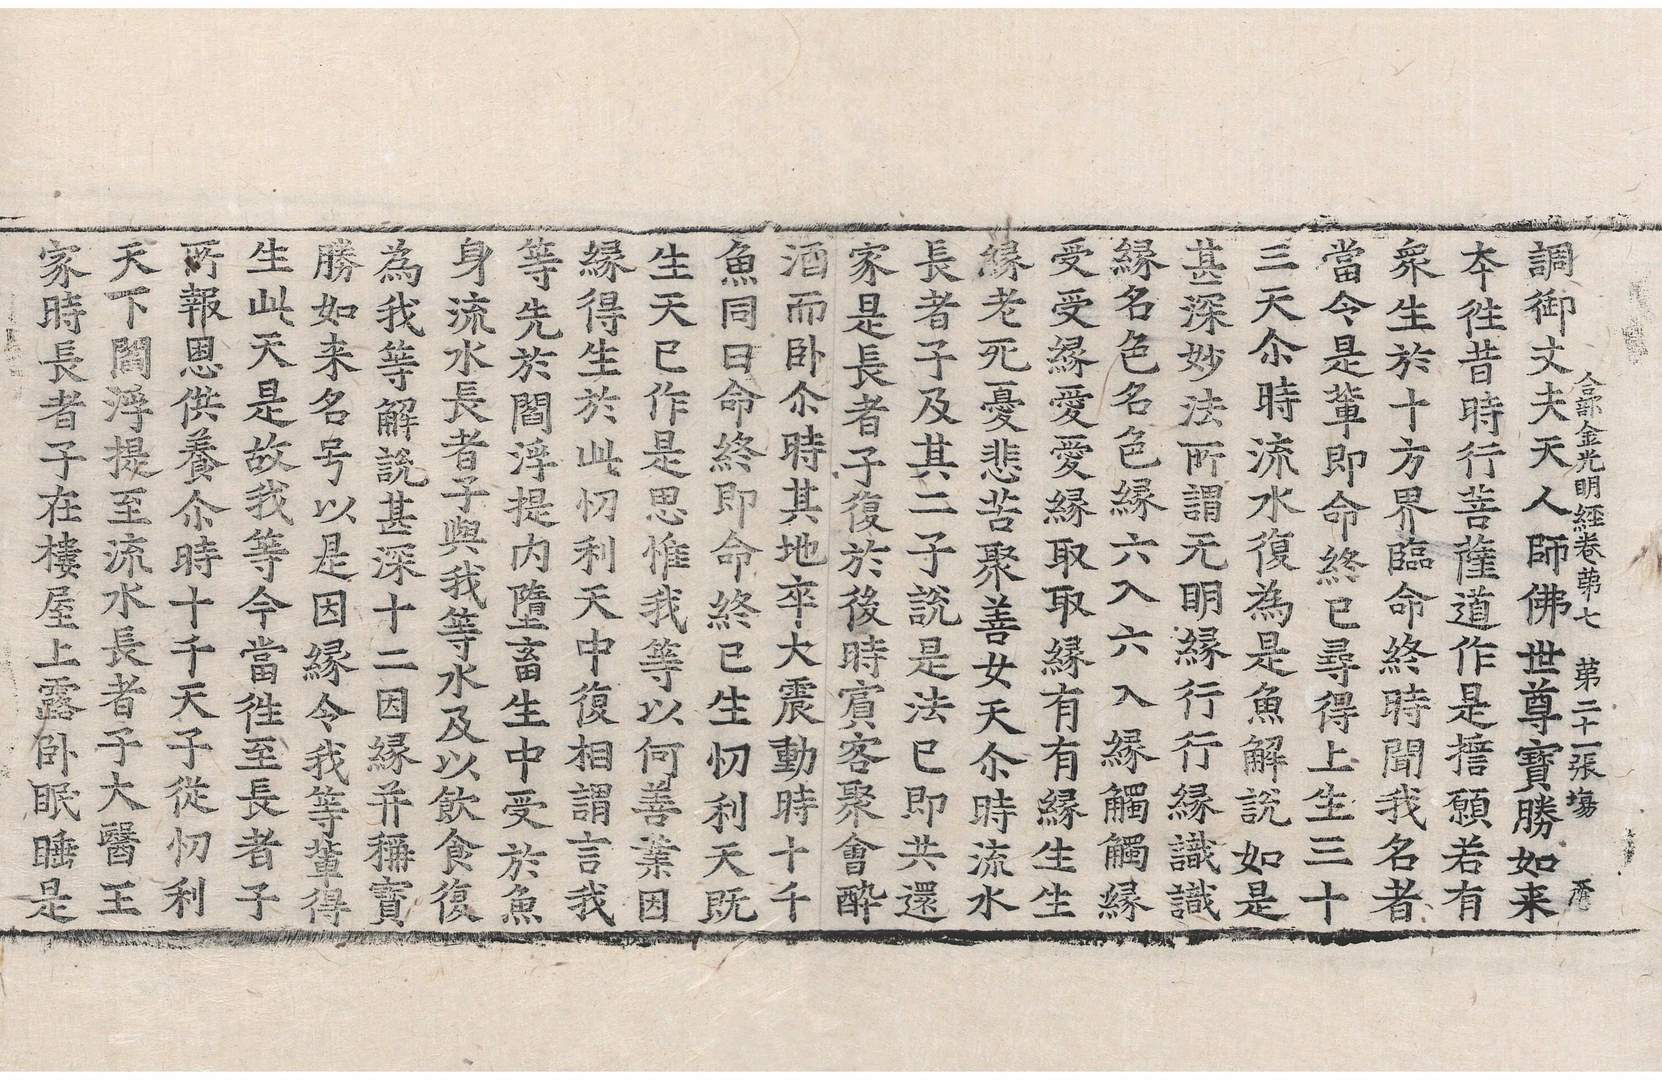 合部金光明經卷苐七 苐二十一張 塲
調御丈夫天人師佛世尊寶勝如来
夲徃昔時行菩薩道作是誓願若有
衆生於十方界臨命終時聞我名者
當令是軰即命終已尋得上生三十
三天尒時流水復為是魚解說如是
甚深妙法所謂无明縁行行縁識識
縁名色名色縁六入六入縁觸觸縁
受受縁愛愛縁取取縁有有縁生生
縁老死憂悲苦聚善女天尒時流水
長者子及其二子說是法已即共還
家是長者子復於後時賔客聚會醉
酒而卧尒時其地卒大震動時十千
魚同日命終即命終已生忉利天既
生天已作是思惟我等以何善業因
縁得生於此忉利天中復相謂言我
等先於閻浮提内墮畜生中受於魚
身流水長者子與我等水及以飲食復
為我等解說甚深十二因縁并稱寶
勝如来名号以是因縁令我等軰得
生此天是故我等今當徃至長者子
所報恩供養尒時十千天子從忉利
天下閻浮提至流水長者子大醫王
家時長者子在樓屋上露卧眠睡是